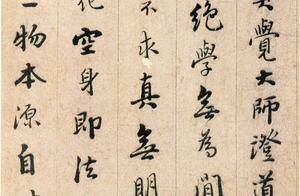 覺大師證道
絕學無為閒
不求真無明
化空身即法
一物本源自